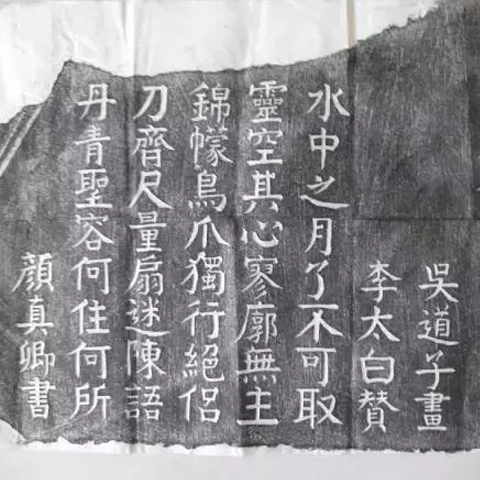 吳道子畫
李太白賛
水中之月了不可取
靈空其心寥廓無主
錦幪鳥爪獨行絕侶
刀齊尺量扇迷陳語
丹青聖容何住何所
顏真卿書